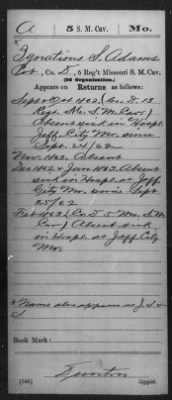 A | 5 S. M. Cav. | Mo.
* Ignatious S. Adams
Pvt, Co. D, 5 Reg't Missouri S. M. Cav.
(2d Organization.)
Appears on Returns as follows:
Sept & Oct 1862 (Co. D. 13
Regt Mo. S. M. Cav)
Absent sick in Hospt.
Jeff. City Mo. since
Sept. 25/62
Nov. 1862. Absent
Dec 1862 & Jany 1863. Absent
sick in Hospt. at Jeff.
City Mo. since Sept
25/62
Feb 1863 (Co. D 5 Mo. S. M.
Cav) Absent sick
in Hospt. at Jeff. City
Mo.
* Name also appears as J. S. &
Book Mark:
(546)
Copyist.